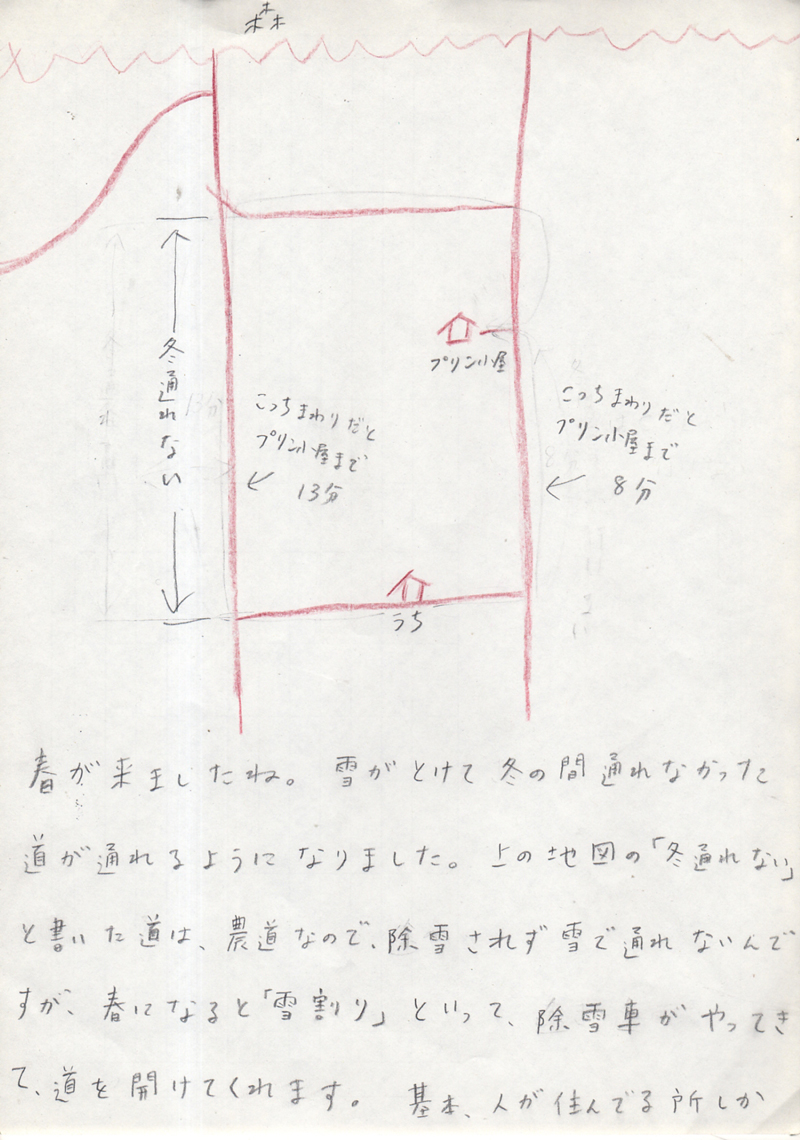 森
プリン小屋
冬通れない
こっちまわりだと
プリン小屋まで
13分
こっちまわりだと
プリン小屋まで
8分
うち
春が来ましたね。雪がとけて冬の間通れなかった
道が通れるようになりました。上の地図の「冬通れない」
と書いた道は、農道なので、除雪されず雪で通れないんで
すが、春になると「雪割り」といって、除雪車がやってき
て、道を開けてくれます。基本、人が住んでる所しか